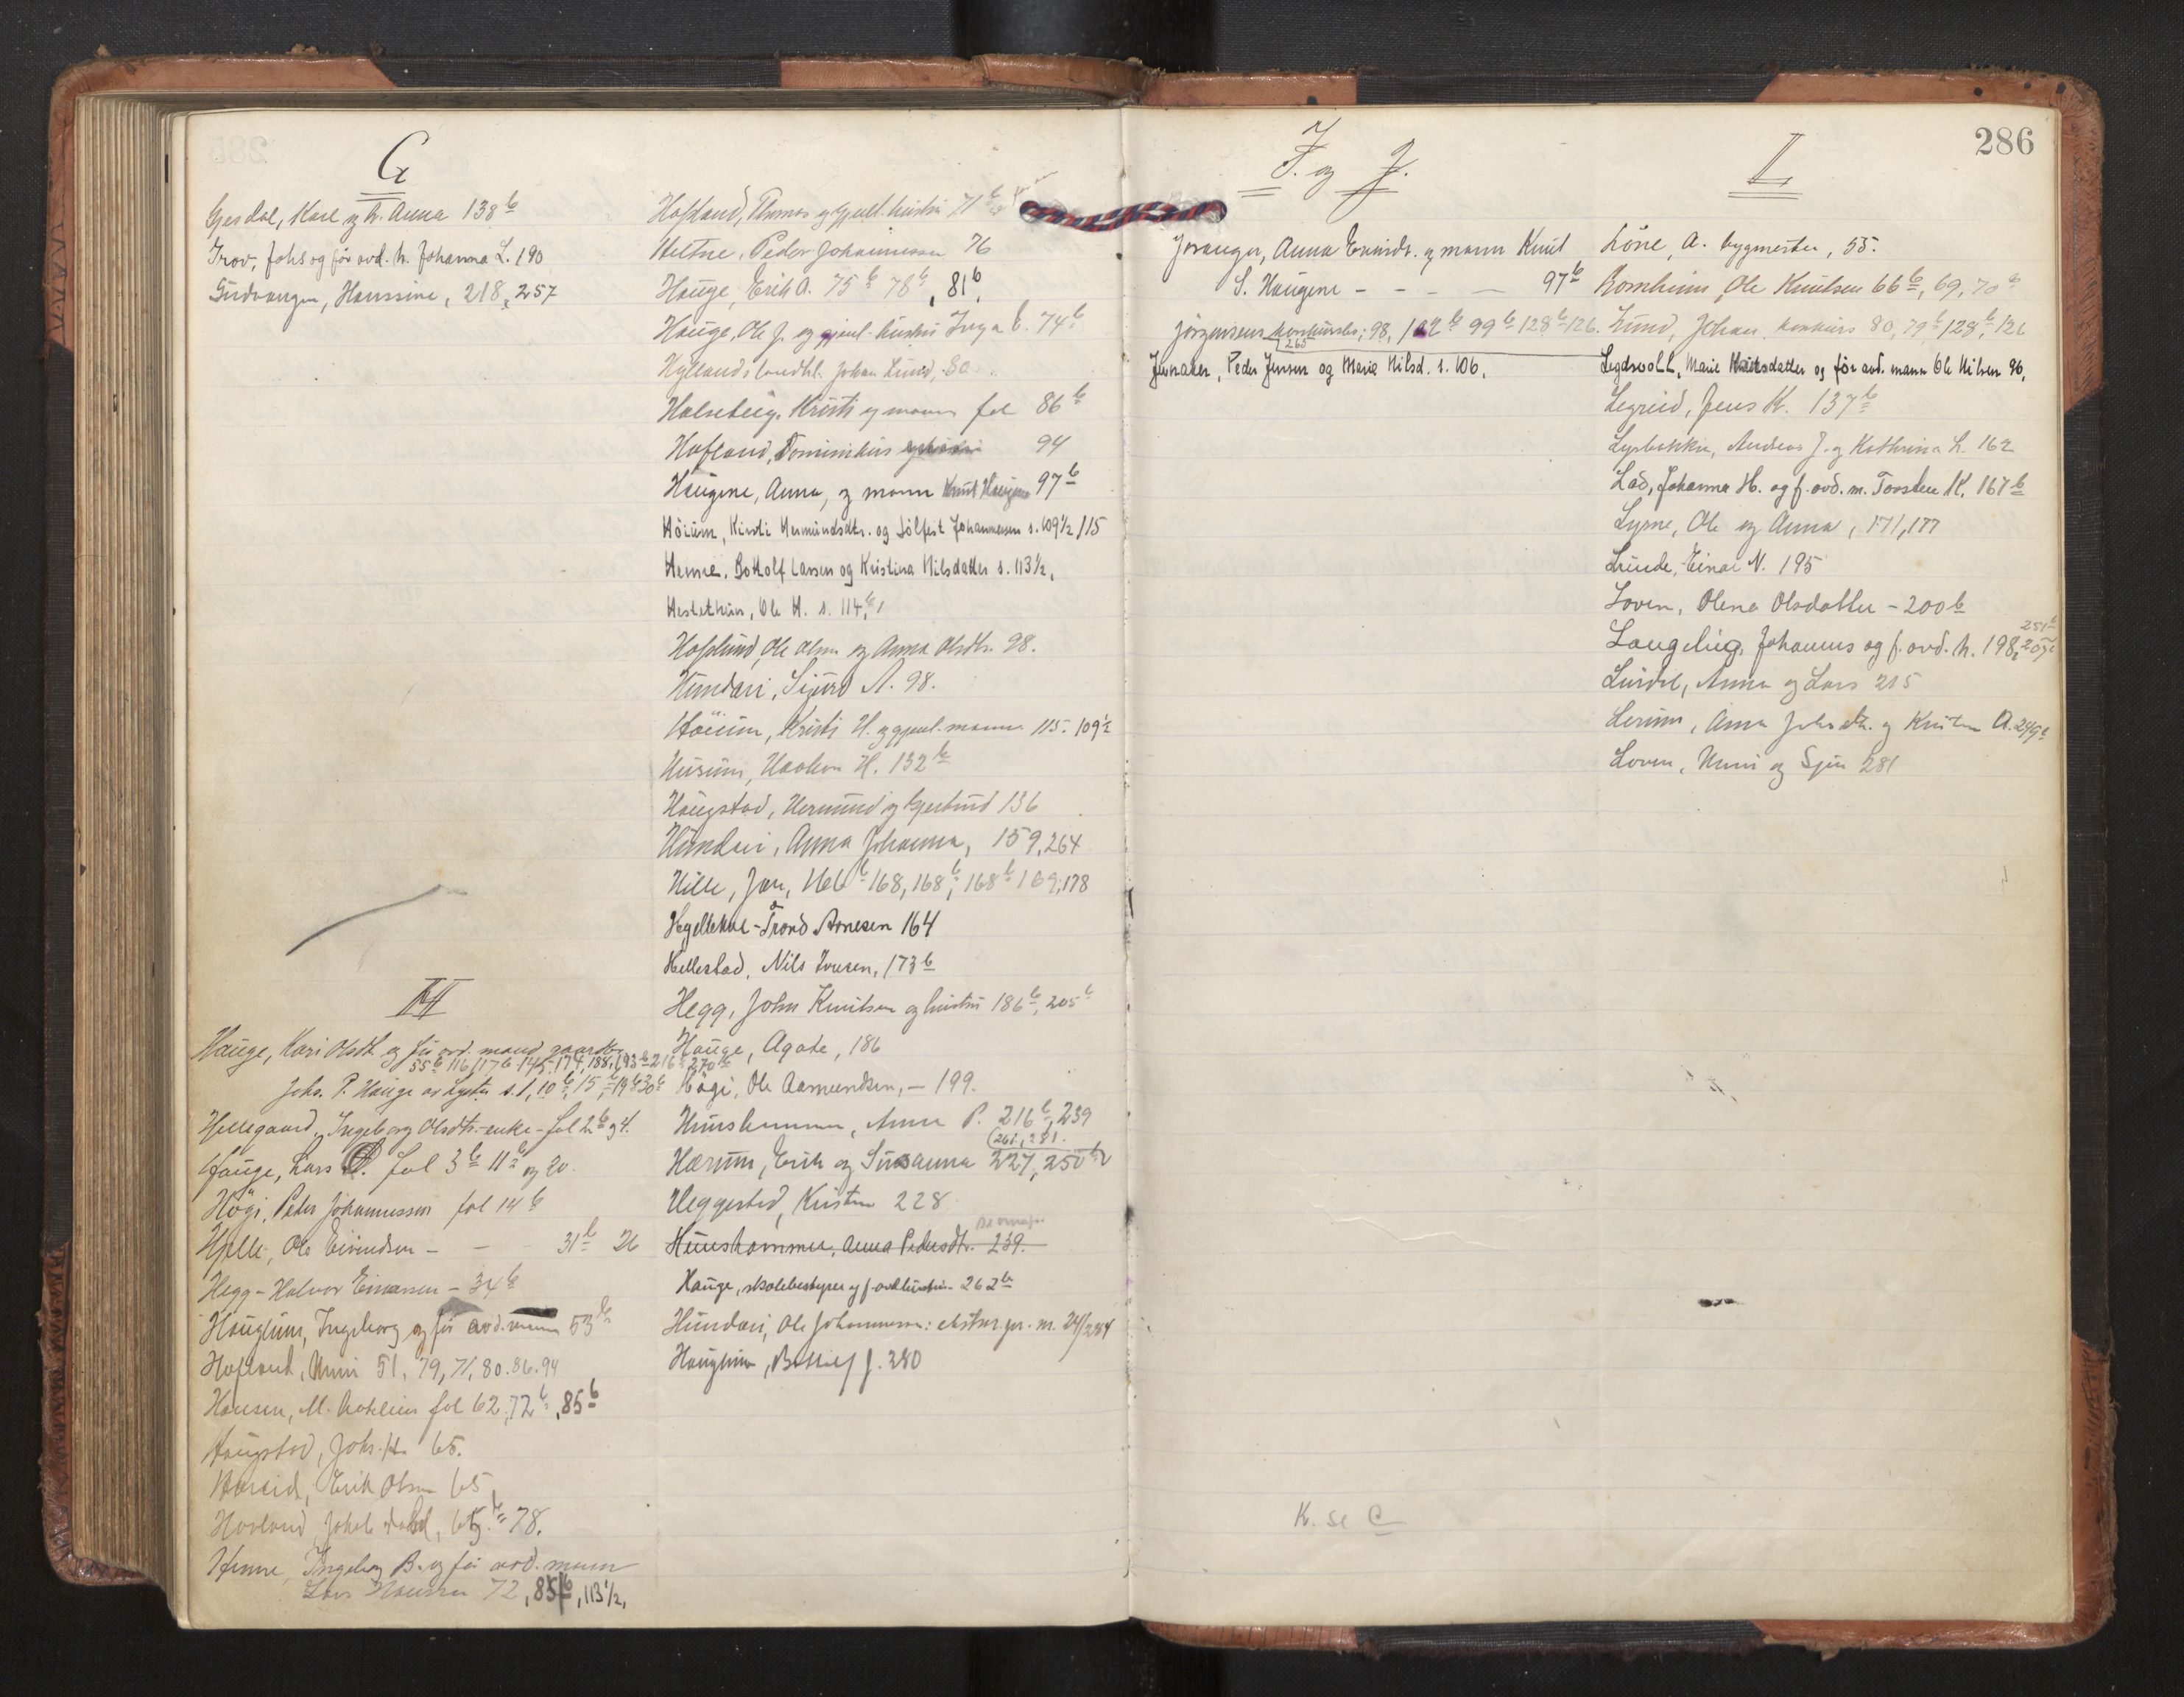 G
Gjesdal, Karl og h. Anna 138 b
Grov, Johs og før avd. h. Johanna L. 190
Gudvangen, Hanssine, 218, 257
H
Hauge, Kari Olsdt. og før avd. mand
55 b 116, 117 b 145, 174, 188, 193 b 216 270 b
Johs. P. Hauge av Lyster s. 1, 10 b, 15, 19 b 30 b
Hellegaard, Ingeborg Olsdtr. enke - fol 2 b og 4.
Hauge, Lars fol 3 b 11 b og 20.
Högi, Peder Johannessen fol 14 b
Hjelle, Ole Eivindsen - - 31 b 26
Hegg - Halvor Einarsen - 34 b
Haughum, Ingeborg og før avd. mann 53 b
Hofland, Unni 51, 79, 71, 80. 86. 94
Hansen, M. fol 62, 72 b, 85 b
Haugstad, Johs. H. 65.
Erik Olsen 65,
Hovland, Jakob 65 b 78.
Henne, Ingeborg B. og før avd. mann
Lars Hansen 72, 85 b, 113 1/2,
Hofland, Thomas og gjenl. hustru 71 b
Heltne, Peder Johannessen 76
Hauge, Erik A. 75 b 78 b, 81 b,
Hauge, Ole J. og gjenl. hustru Inga E. 74 b
Hyllands landhl. Johan Lund, 80
Holsberg, Kristi og mann fol 86 b
Hofland, Dominikus 94
Haugene, Anna, og mann Knut Haugene 97 b
Höium, Kirsti Hermundsdtr. og Sölfest Johannessen s. 109 1/2 115
Henne, Bottolf Larsen og Kristina Nilsdatter s. 113 1/2,
Hestethun, Ole H. s. 114, b
Hafslund, Ole Olsen og Anna Olsdtr. 98.
Hundari, Sigurd A. 98.
Höium, Kristi H. og gjenl. mann 115. 109 1/2
Husum, Haakon H. 132 b
Haugstad, Hermund og Gjertrud 136
Hundari, Anna Johanna, 159, 264
Hille, Jan, 166 b 168, 168 b, 168 b 169, 178
Hjellekval - Trond Arnesen 164
Hellestad, Nils Iversen, 173 b
Hegg, John Knutsen og hustru 186 b, 205 b
Hauge, Agate, 186
Högi, Ole Aamundsen, - 199.
Hunshammer, Anna P. 216 b, 239
(261, 281.
Hærum, Erik og Susanna 227, 250 b
Heggestad, Kristen 228
Hunshammer, Anna Pedersdtr. 239.
Hauge, skolebestyrer og f. avd hustru 262 b
Hundari, Ole Johannessen: ekstrapr. nr. 24/284
Haughum, Bottolf J. 280
I. og J.
Joranger, Anna Eivindt. og mann Knut
S. Haugene - - - 97 b
Jörgensens konkursbo; 98, 102 b 99 b 128 b 126.
265
Jevnaker, Peder Jensen og Marie Nilsd. s. 106.
K. se C
286
L
Löne, A. bygmester, 55.
Lomheim, Ole Knutsen 66 b, 69, 70 b
Lund, Johan konkurs 80, 79 b 128 b, 126
Legdsvoll, Marie og før avd. mann Ole Nilsen 96.
Legreid, Jens K. 137 b
Lysbakken, Andreas J. og Kathrina L. 162
Lad, Johanna H. og f. avd. m. Torsten K. 167 b
Lyrne, Ole og Anna, 171, 177
Lunde, Einar N. 195
Loven, Olena Olsdatter - 200 b
251 b
Laugelug, Johannes og f. avd. h. 198, 209 b
Luidel, Anna og Lars 215
Lerum, Anna Johsdtr. og Kristen A. 249 b
Loven, Unni og Sjur 281